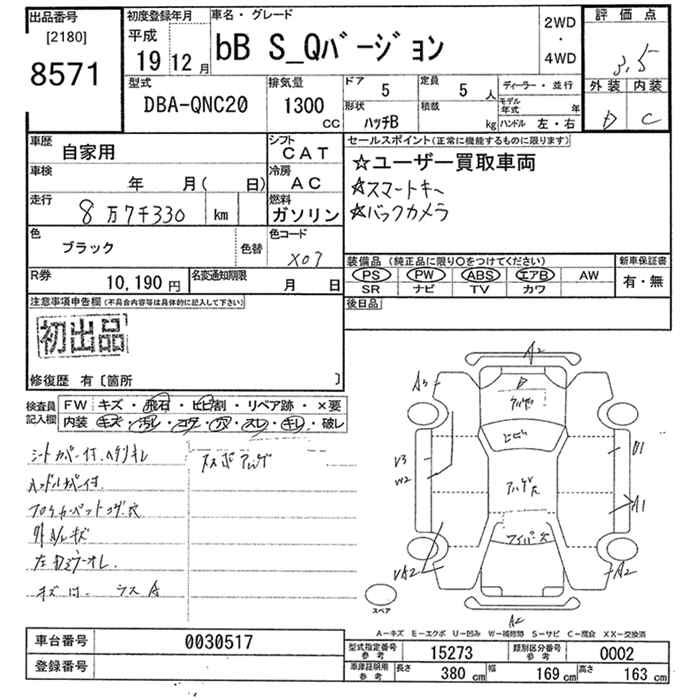 出品番号 初度登録年月 車名・グレード 2WD 評価点
[2180] 平成 ・
8571 19 12月 bB S_Qバージョン 4WD 3.5
型式 排気量 ドア 5 定員 5 人 ディーラー・並行 外装 内装
DBA-QNC20 1300 cc 形状 ハッチB 積載 kg モデル年式 年 D C
ハンドル 左・右
車歴 自家用 シフト CAT セールスポイント(正常に機能するものに限ります)
車検 年 月( 日) 冷房 AC ☆ユーザー買取車両
走行 8万7千330 km 燃料 ガソリン ☆スマートキー
☆バックカメラ
色 ブラック 色替 色コード X07
装備品 (純正品に限り○をつけてください) 新車保証書
R券 10,190円 名変通知期限 月 日 PS PW ABS エアB AW 有・無
SR ナビ TV カワ
注意事項申告欄(不具合内容等は具体的に記入して下さい) 後日品
初出品
修復歴 有〔箇所 〕
検査員 FW キズ・飛石・ヒビ割・リペア跡・×要
記入欄 内装 キズ・汚レ・コゲ・穴・スレ・キレ・破レ
シートカバー付.
ハンドルカバー付
外A/Lキズ
A2
A3
ヒビ
V3
W2
A1
ワイパーキズ
A2
A2
スペア
A-キズ E-エクボ U-凹み W-補修跡 S-サビ C-腐食 XX-交換済
車台番号 0030517 型式指定番号 参考 15273 類別区分番号 参考 0002
登録番号 車庫証明用 参考 長さ 380 cm 幅 169 cm 高さ 163 cm